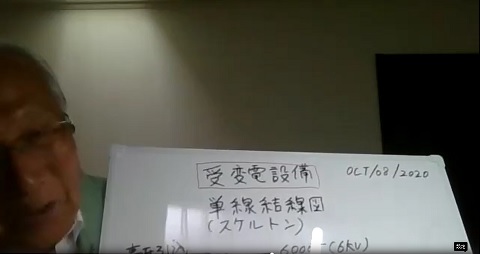 受変電設備 OCT/08/2020
単線結線図
(スケルトン)
(6KV)